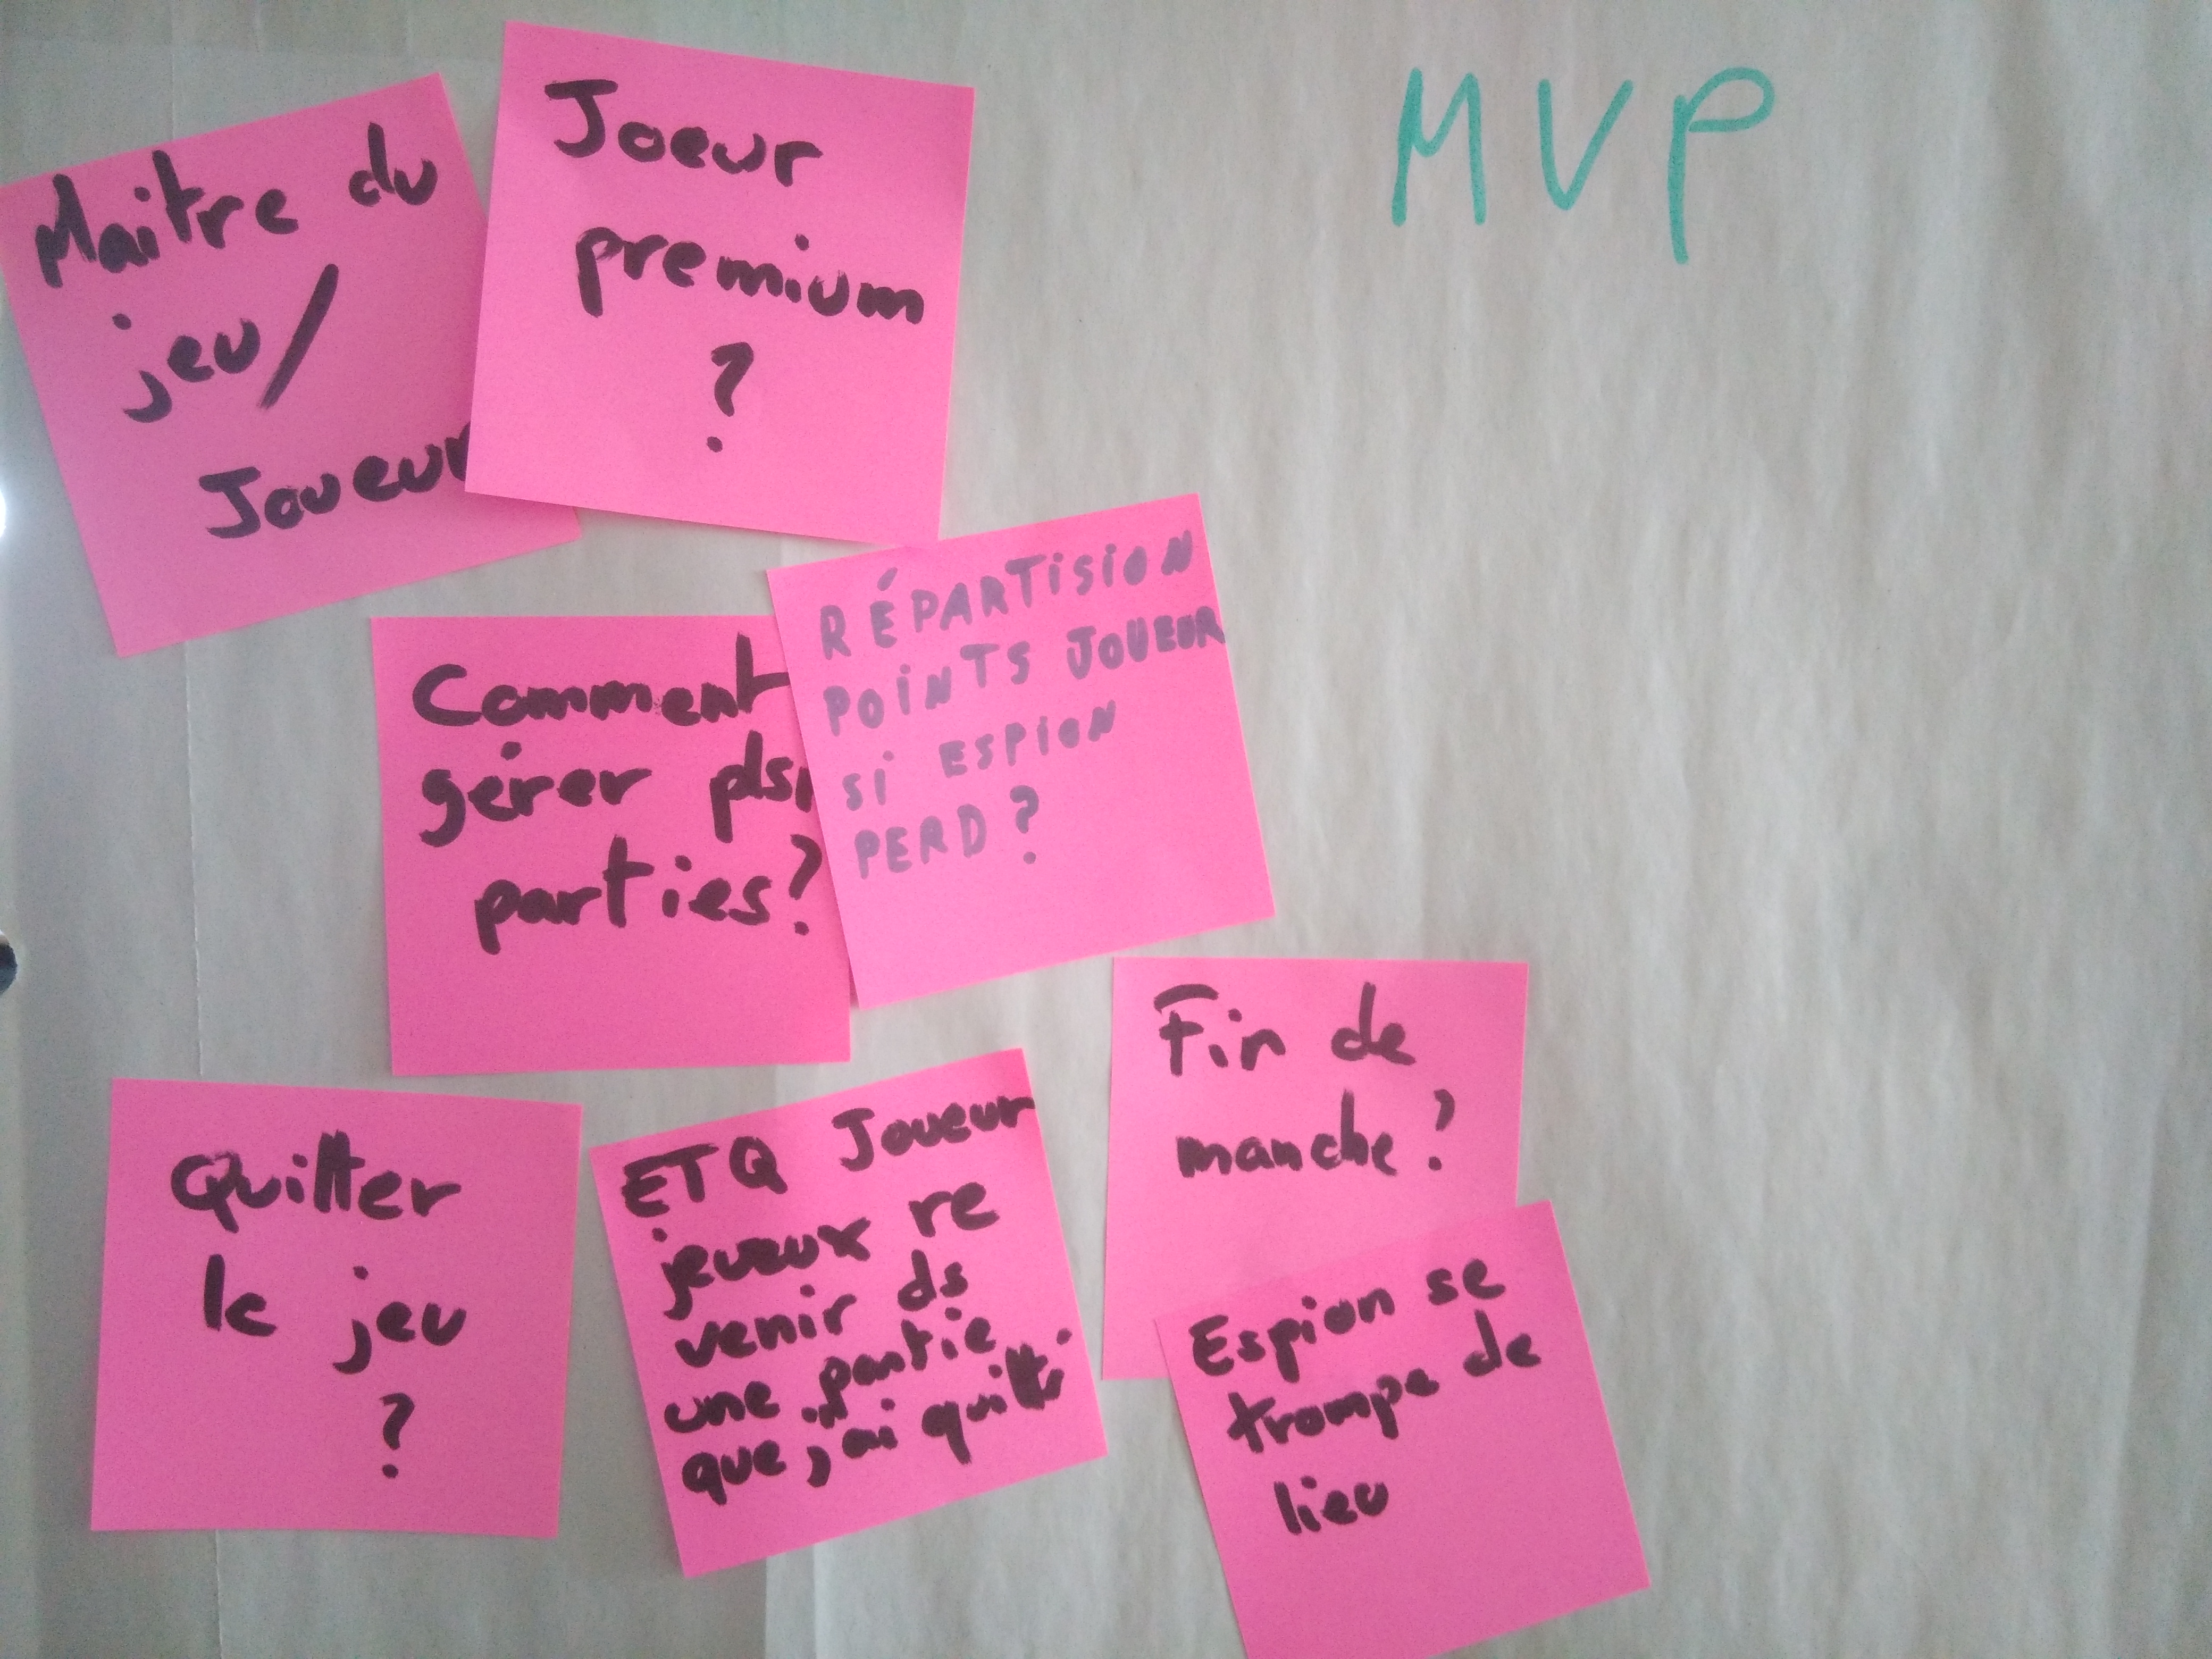 MVP
Maitre du
jeu/
Joueur
Joeur
premium
?
Comment
gérer plsr
parties?
RÉPARTISION
POINTS JOUEUR
Si ESPION
PERD?
Quitter
le jeu
?
ETQ Joueur
jeveux re
venir ds
une partie
que j'ai quitté
Fin de
manche?
Espion se
trompe de
lieu